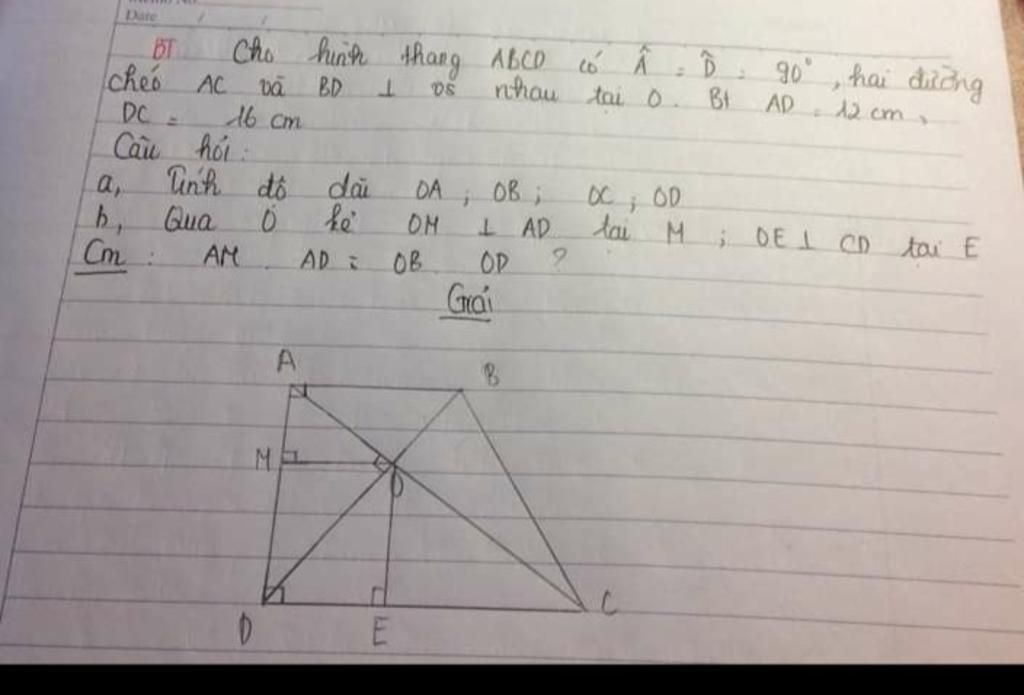 Date / /
BT Cho hình thang ABCD có Â = D̂ = 90°, hai đường
chéo AC và BD ⊥ vs nhau tại O. Bt AD = 12 cm,
DC = 16 cm
Câu hỏi:
a, Tính độ dài OA; OB; OC; OD
b, Qua O kẻ OM ⊥ AD tại M; OE ⊥ CD tại E
Cm: AM . AD = OB . OD ?
Giải
A B
M O
D E C